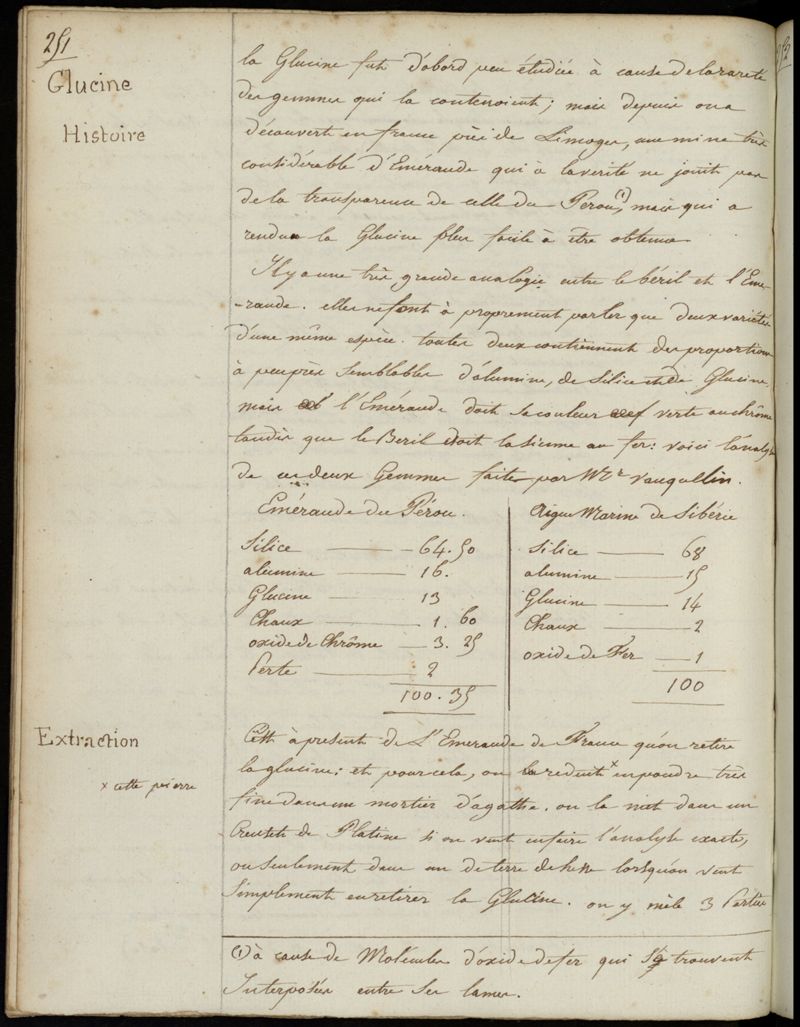 251
252
Glucine
Histoire
la Glucine fut d'abord peu étudiée à cause de la rareté
des gemmes qui la contenoient; mais depuis on a
découvert en france près de Limoges, une mine très
considérable d'Eméraude qui à la verité ne jouit pas
de la transparence de celle du Pérou,(1) mais qui a
rendu la Glucine plus facile à être obtenue.
Il y a une très grande analogie entre le béril et l'Eme-
-raude. elles ne font à proprement parler que deux variétés
d'une même espèce. toutes deux contiennent des proportions
à peu près semblables d'alumine, de silice et de Glucine.
mais l'Eméraude doit sa couleur verte au chrôme
tandis que le Beril doit la sienne au fer: voici l'analyse
de ces deux Gemmes faites par Mr. Vauquellin.
Eméraude du Pérou.
Silice — 64.50
alumine — 16.
Glucine — 13
Chaux — 1.60
oxide de Chrôme — 3.25
Perte — 2
100.35
Aigue Marine de Sibérie
Silice — 68
alumine — 15
Glucine — 14
Chaux — 2
oxide de Fer — 1
100
Extraction
C'est à present de l'Emeraude de France qu'on retire
la glucine; et pour cela, on la reduit x en poudre très
x cette pierre
fine dans un mortier d'agathe. on la met dans un
Creuset de Platine si on veut en faire l'analyse exacte,
ou seulement dans un de terre de hesse lorsqu'on veut
simplement en retirer la Glucine. on y mêle 3 Parties
(1) à cause de Molécules d'oxide de fer qui se trouvent
Interposées entre ses lames.